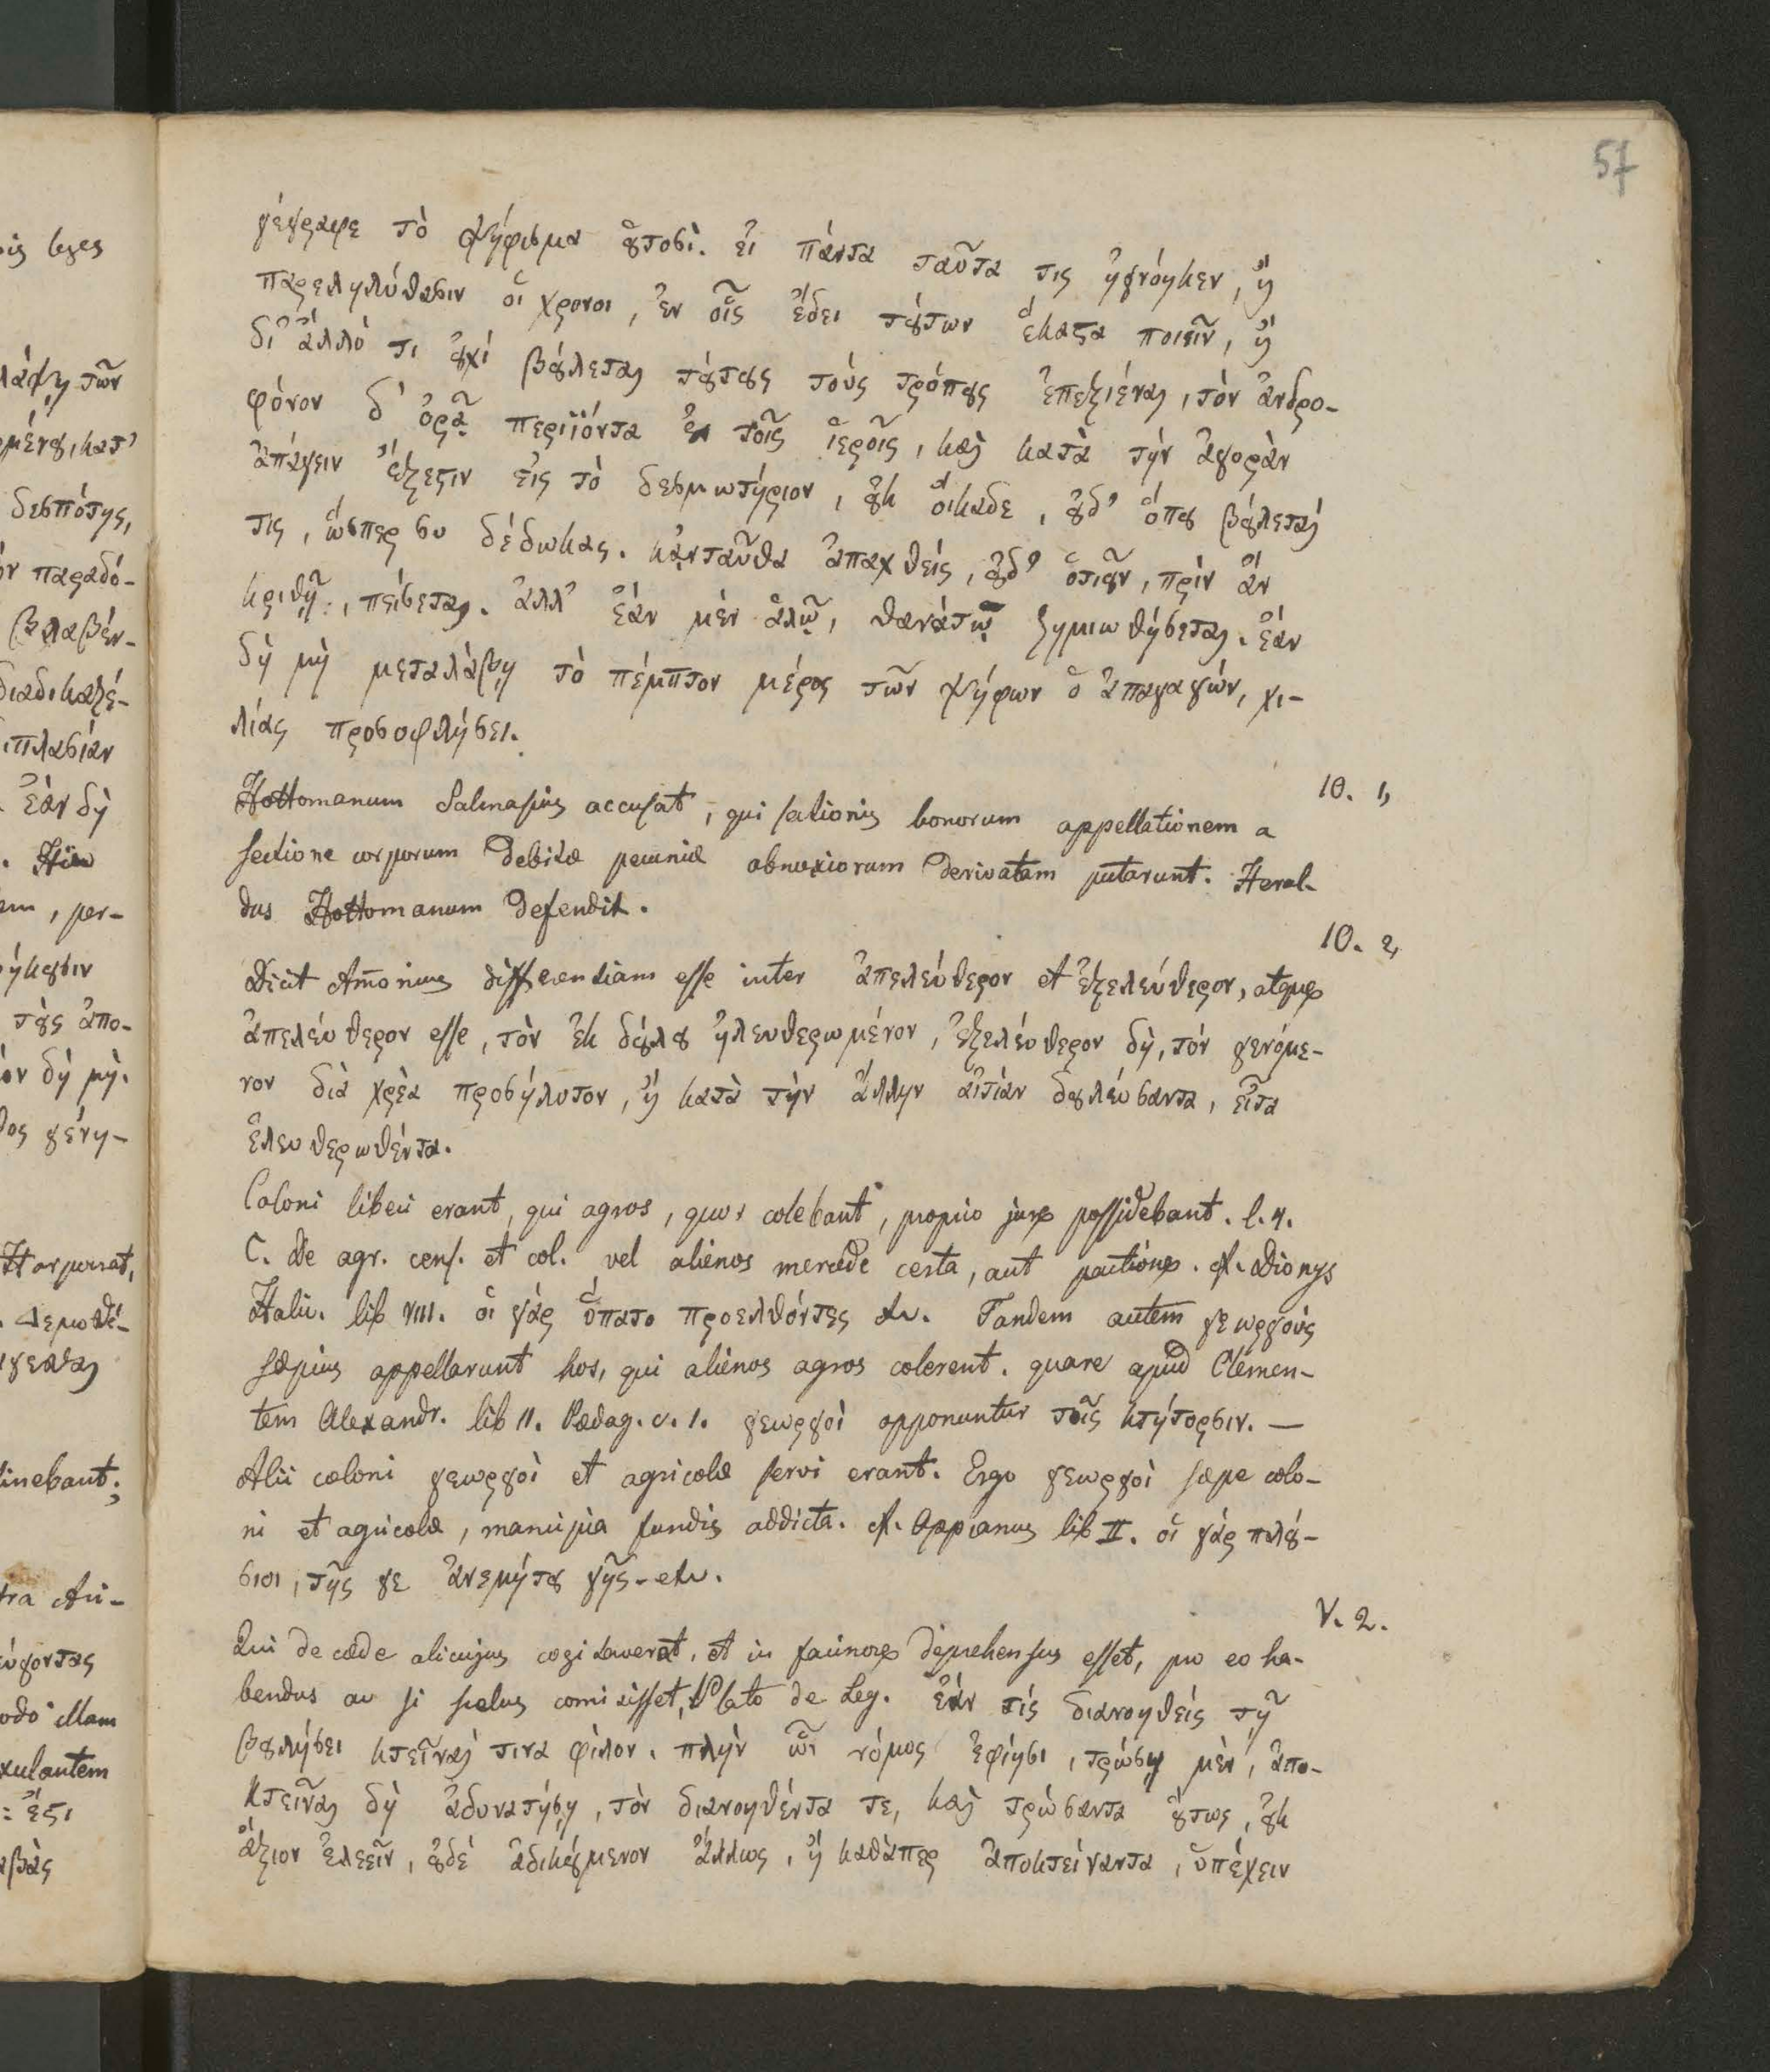 57
γέγραφε τὸ ψήφισμα ȣ̓τοσὶ. εἰ πάντα ταῦτα τις ἠγνόηκεν, ἢ
παρεληλύθασιν οἱ χρονοι, ἐν οἷς ἔδει τȣ́των ἕκαϛα ποιεῖν, ἢ
δι' ἀλλό τι ȣ̓χί βȣ́λεται τȣ́τȣς τούς τρόπȣς ἐπεξιέναι, τὸν ἀνδρο-
φόνον δ' ὁρᾷ περιϊόντα ἐν τοῖς ἱεροῖς, καὶ κατὰ τὴν ἀγορὰν
ἀπάγειν ἔξεϛιν εἰς τὸ δεσμωτήριον, ȣ̓κ οἴκαδε, ȣ̓δ' ὅπȣ βȣ́λεταί
τις, ὥσπερ συ δέδωκας. κᾀνταῦθα ἀπαχθείς, ȣ̓δ' ὁτιȣ͂ν, πρὶν ἂν
κριθῇ, πείσεται. ἀλλ' ἐάν μὲν ἁλῷ, θανάτῳ ζημιωθήσεται. ἐάν
δὴ μὴ μεταλάβῃ τὸ πέμπτον μέρος τῶν ψήφων ὁ ἀπαγαγών, χι-
λίας προσοφλήσει.
10. 1,
Hottomanum Salmasius accusat, qui sationis bonorum appellationem a
sectione corporum debitæ pecuniæ obnoxiorum derivatam putarunt. Heral-
dus Hottomanum defendit.
10. 2,
Dicit Am̄onius differentiam esse inter ἀπελεύθερον et ἐξελεύθερον, atque
ἀπελεύθερον esse, τὸν ἐκ δȣ́λȣ ἠλευθερωμένον, ἐξελεύθερον δὴ, τόν γενόμε-
νον διὰ χρὲα προσήλυτον, ἢ κατὰ τὴν ἄλλην αἰτίαν δȣλεύσαντα, εἶτα
ἐλευθερωθέντα.
Coloni liberi erant, qui agros, quos colebant, proprio jure possidebant. l. 4.
C. De agr. cens. et col. vel alienos mercede certa, aut pactione. cf. Dionys
Halic. lib VIII. οἱ γάρ ὕπατο προελθόντες etc. Tandem autem γεωργούς
sæpius appellarunt hos, qui alienos agros colerent. quare apud Clemen-
tem Alexandr. lib II. Pædag. c. 1. γεωργοὶ opponuntur τοῖς κτήτορσιν. —
Alii coloni γεωργοὶ et agricolæ servi erant. Ergo γεωργοὶ sæpe colo-
ni et agricolæ, mancipia fundis addicta. cf. Appianus lib II. οἱ γάρ πλȣ́-
σιοι, τῆς γε ἀνεμήτȣ γῆς - etc.
V. 2.
Qui de cæde alicujus cogitaverat, et in facinore deprehensus esset, pro eo ha-
bendus ac si scelus com̄isisset, Plato de Leg. ἐάν τίς διανοηθείς τῇ
βȣλήσει κτεῖναί τινα φίλον. πλὴν ὧι νόμος ἐφίησι, τρώσῃ μὲν, ἀπο-
κτεῖναι δὴ ἀδυνατήσῃ, τὸν διανοηθέντα τε, καὶ τρώσαντα ȣ̔́τως, ȣ̓κ
ἄξιον ἐλεεῖν, ȣ̓δὲ ἀδικȣ́μενον ἄλλως, ἢ καθὰπερ ἀποκτείναντα, ὑπέχειν